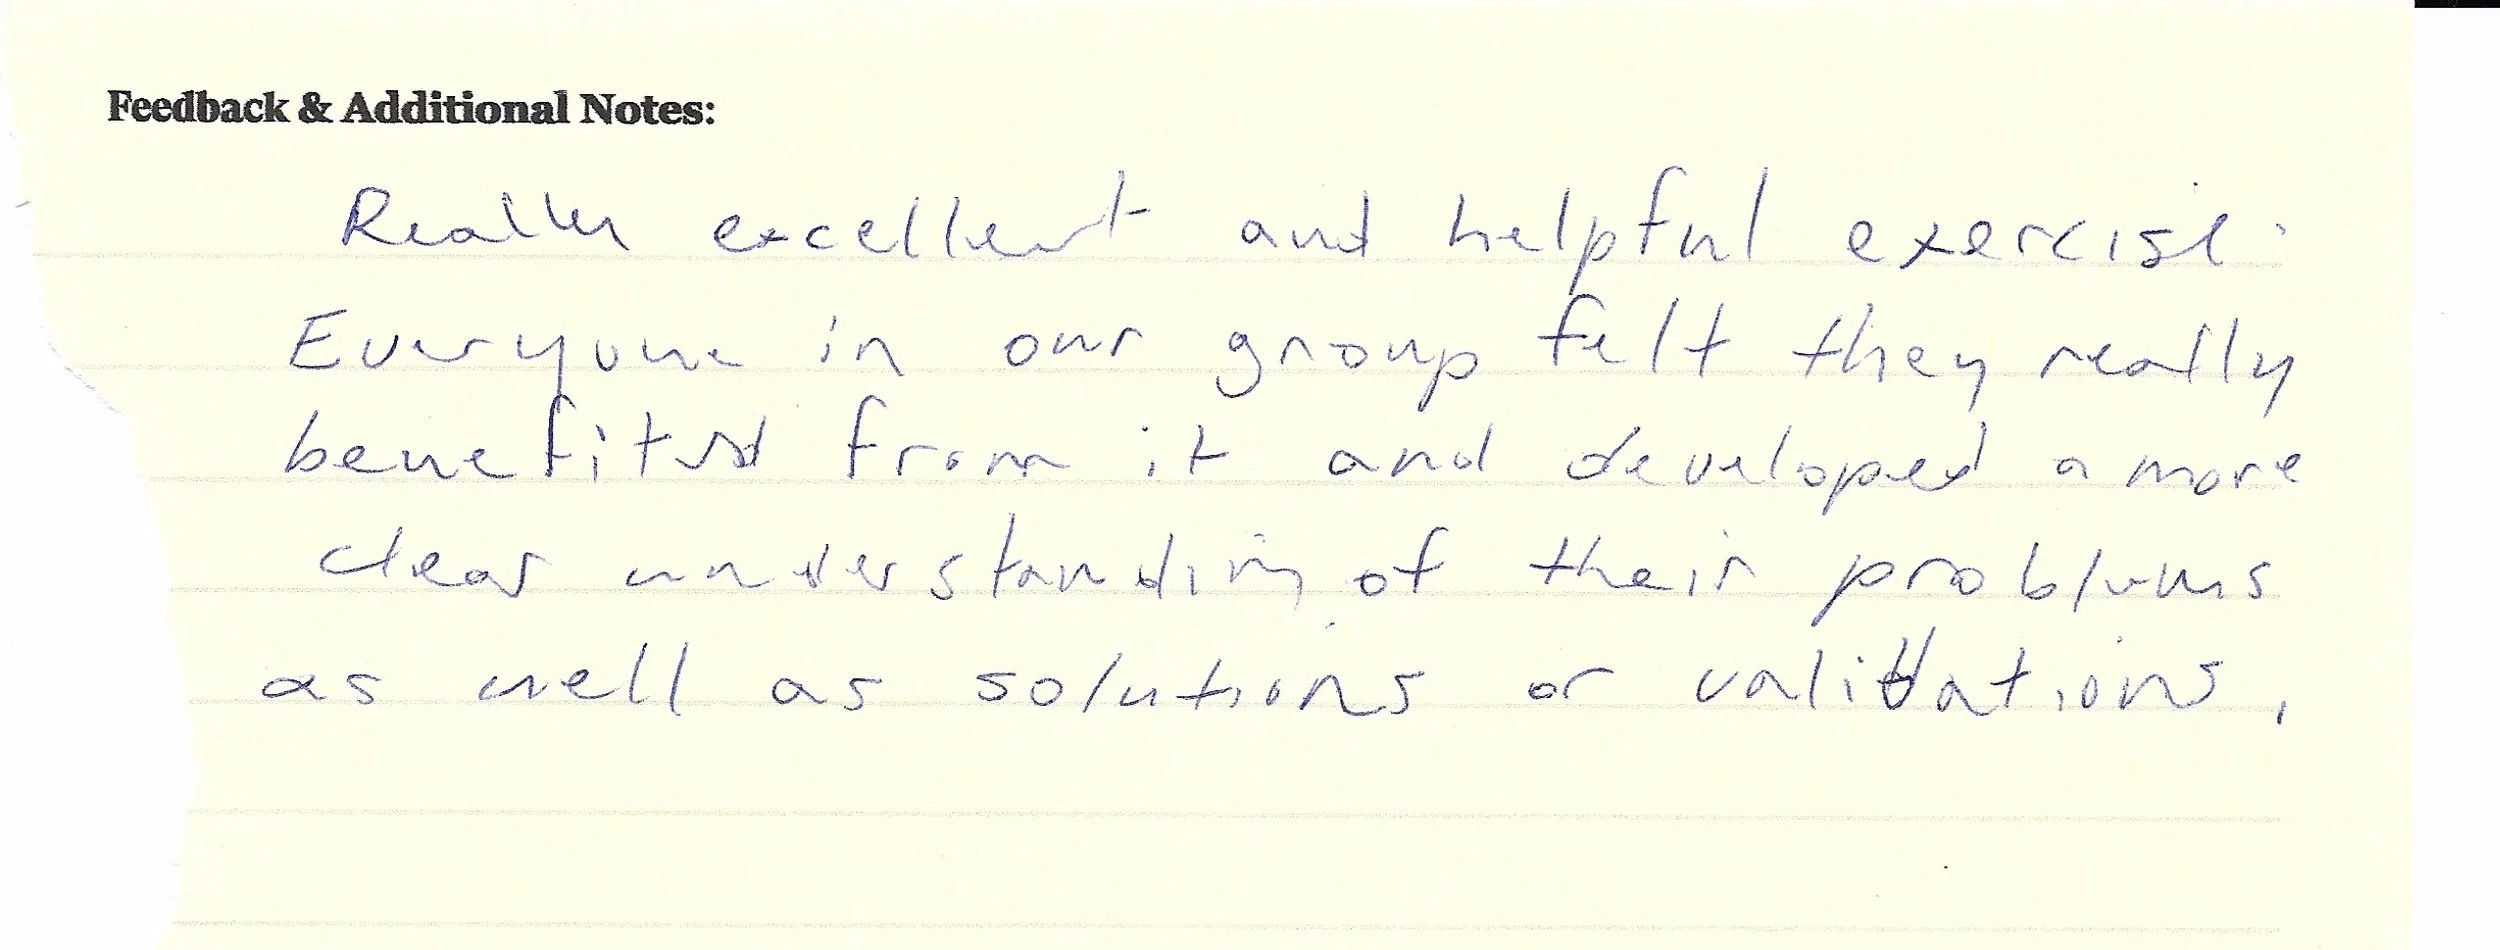 Feedback & Additional Notes:
Really excellent and helpful exercise.
Everyone in our group felt they really
benefited from it and developed a more
clear understanding of their problems
as well as solutions or validations.